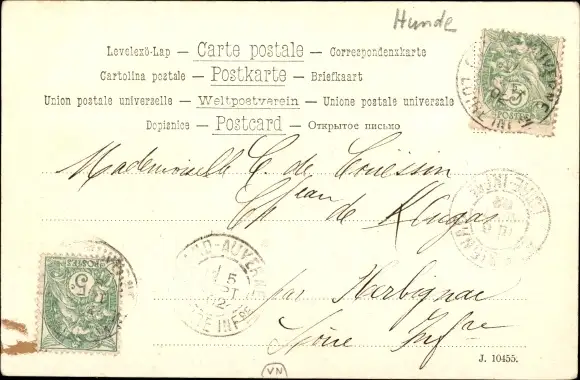 Hunde
Levelező-Lap — Carte postale — Correspondenzkarte
Cartolina postale — Postkarte — Briefkaart
Union postale universelle — Weltpostverein — Unione postale universale
Dopisnice — Postcard — Открытое письмо
Mademoiselle C. de Couëssin
Jean de
par Herbignac
Loire Infre
5
POSTES
5
POSTES
D-AUVERNE
5
SEPT
02
RE INFRE
LOIRE-INFRE
02
J. 10455.
VN